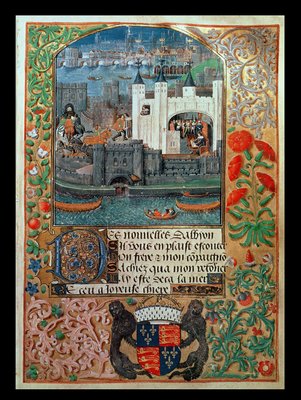 Des nouuelles dalbyon
Sil vous en plaist escouter
Mon frere & mon cõpaignõ
Sachiez qua mon retorner
Iay este deca la mer
Receu a Ioyeuse chiere